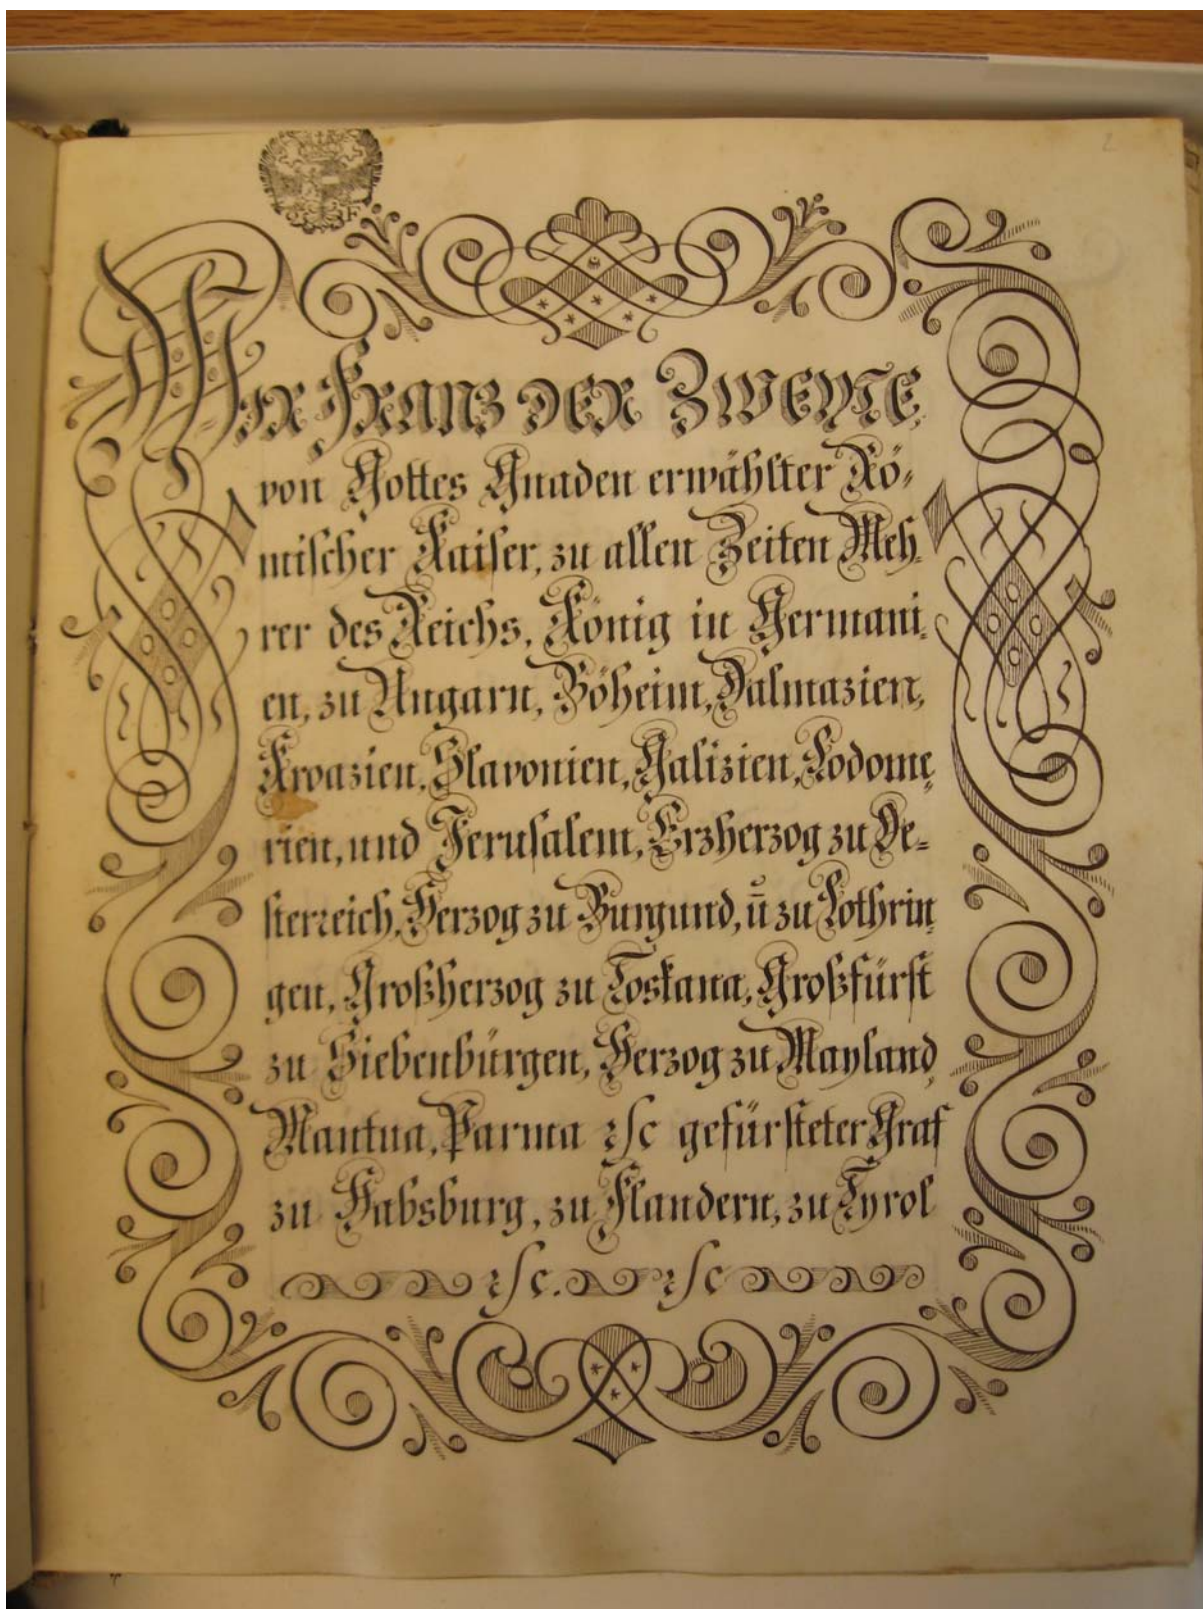 2
F
Wir Franz der Zweyte,
von Gottes Gnaden erwählter Rö-
mischer Kaiser, zu allen Zeiten Meh-
rer des Reichs, König in Germani-
en, zu Ungarn, Böheim, Dalmazien,
Kroazien, Slavonien, Galizien, Lodome-
rien, und Jerusalem, Erzherzog zu Oe-
sterreich, Herzog zu Burgund, ū zu Lothrin-
gen, Großherzog zu Toskana, Großfürst
zu Siebenbürgen, Herzog zu Mayland,
Mantua, Parma ꝛc gefürsteter Graf
zu Habsburg, zu Flandern, zu Tyrol
ꝛc. ꝛc